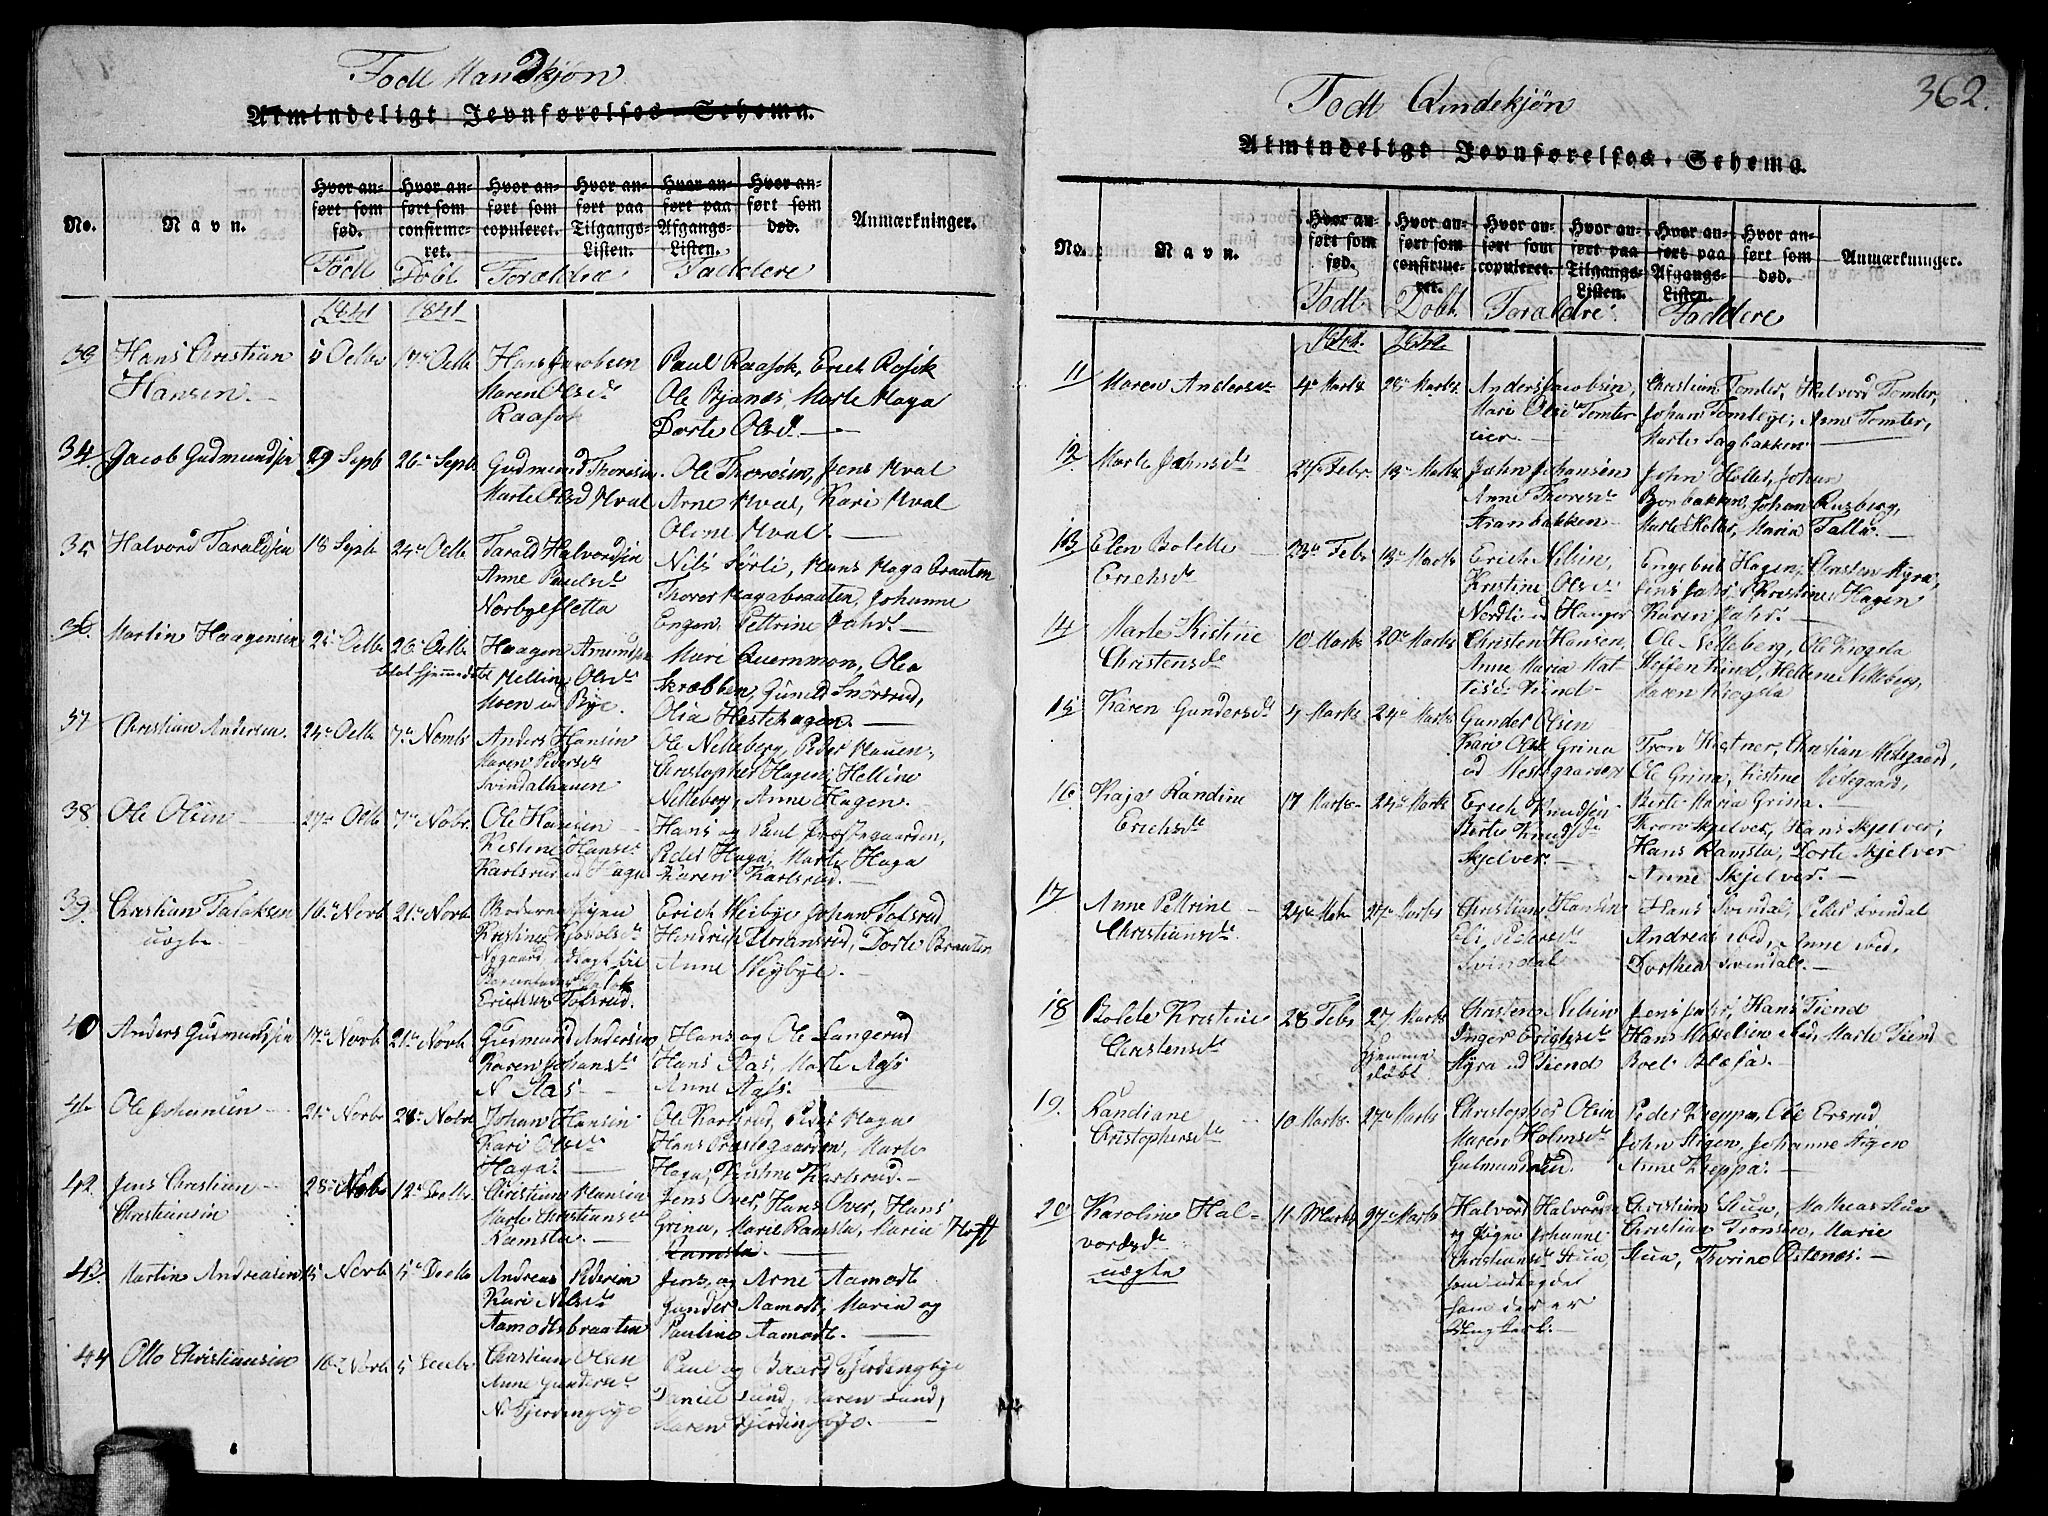 Født Mandkjøn
Almindeligt Jevnførelses-Schema.
No.
Navn.
Hvor an-
ført som
fød.
Hvor an-
ført som
confirme-
ret.
Hvor an-
ført som
copuleret.
Hvor an-
ført paa
Tilgangs-
Listen.
Hvor an-
ført paa
Afgangs-
Listen.
Hvor an-
ført som
død.
Anmærkninger.
Født Døbt Forældre Faddere
1841 1841
Hans Christian
Hansen
Octb 17de Octb
Hans Jacobsen
Maren Olsdt
Raasok
Paul Raasok, Erich Rasok
Ole Bjanes, Marte Haga
Dorte Olsdt
34 Jacob Gudmundsen
29 Septb 26de Septb
Gudmund Thoresen
Marte Olsd Hval
Ole Thoresen, Jens Hval
Arne Hval, Kari Hval
Oline Hval.
35 Halvord Taraldsen
18 Septb 24de Octb
Tarald Halvordsen
Anne Paulsdt
Norbyesletta
Nils Sörli, Hans Haga Braaten
Thorer Hagabraaten, Johanne
Engen, Pettrine
36. Martin Haagensen
Octb Octb
blot hjemmedøbt
Haagen Amundsen
Helline Olsdt
Moen ud Bye.
Mari Quernmon, Olea
Skræbben, Gunild
Olia Hestehagen.
37 Christian Andersen.
24de Octb 7de Novmb
Anders Hansen
Maren Pedersdt
Svindalhauen
Ole Netteberg, Peder Hauen,
Christopher Hagen, Helline
Netteberg, Anne Hagen.
38. Ole Olsen
27de Octb 7de Novbr
Ole Hansen
Kestine Hansdt
Karlsrud ud Haga
Hans og Paul Præstegaarden,
Peder Haga, Marte Haga
Karen Karlsrud.
39. Christian
uægte
16de Novb 21de Novb
Kristine
Nygaard, udlagt til
Erichsen Tolsrud.
Erich Heibye Johan Tolsrud
Hendrich Dorte Braaten
Anne Heybye.
40 Anders Gudmundsen
17de Novb 21de Novb
Gudmund Andersen
Karen Johansdt
N. Aas
Hans og Ole Langerud
Hans Aas, Marte Aas
Anne Aas.
41. Ole Johansen
21de Novbr Novbr
Johan Hansen
Kari Olsdt
Haga
Ole Karlsrud, Peder Haga
Hans Præstegaarden, Marte
Haga, Kestine Karlsrud.
42. Jens Christian
Christiansen
28de Novbr 12de Decbr
Christian Hansen
Marte Christiansdt
Ramsta
Jens Over, Hans Over, Hans
Grina, Marie Ramsta, Maria Hoft
Ramsta.
43. Martin Andreasen
15 Novbr 5de Decbr
Andreas Pedersen
Kari Nilsdt
Aamodtsbraaten
Jens og Arne Aamodt
Gunder Aamodt, Maria og
Pauline Aamodt.
44 Otto Christiansen
16de Novbr 5 Decbr
Christian Olsen
Anne Gundersdt
N. Fjerdingbye
Paul og Baard Fjerdingbye
Daniel Lund, Karen Lund,
Maren Fjerdingbye.
362.
Født Qvindekjøn
Almindeligt Jevnførelses-Schema.
No.
Navn.
Hvor an-
ført som
fød.
Hvor an-
ført som
confirme-
ret.
Hvor an-
ført som
copuleret.
Hvor an-
ført paa
Tilgangs-
Listen.
Hvor an-
ført paa
Afgangs-
Listen.
Hvor an-
ført som
død.
Anmærkninger.
Født Døbt Forældre Faddere
11 Maren Andersdt
4de Marts 28de Marts
Anders Jacobsen,
Mari Olsdt Tomter
eier.
Christian Tomter, Halvord Tomter,
Johan Tomteie, Anne Tomter,
Marte Sagbakken
12 Marte Johnsdt
27de Febr. 13de Marts
John Johansen
Anne Thoresdt
Stranbakken
John Holter, Johan
Borbakken, Johan Rusberg,
Marte Holter, Maria Falla.
13 Elen Bolette
Erichsdt
23de Febr 13de Marts
Erich Nilsen,
Kristine Olsdt
Nordli ud Hanger
Engebret Hagen, Christen Myra,
Christine Hagen
Karen
14 Marte Kistine
Christensdt
10 Marts 20de Marts
Christen Hansen
Anne Maria Mat
Tiend
Ole Netteberg, Ole Krogsla
Steffen Tiend, Hellene Netteberg,
Maren Krogsla
15 Karen Gundersdt
4 Marts 24de Marts
Gunder Olsen
Kari Olsdt Grina
ud Mestegaarden
Tron Kestner, Christian Melegaard,
Ole Grina, Kestine Melegaard,
Berte Maria Grina.
16 Kaja Randine
Erichsdt
17 Marts 24de Marts
Erich Knudsen
Berte Knudsdt
Skjelver
Thron Skjelver, Hans Skjelver,
Hans Ramsta, Dorte Skjelver
Anne Skjelver.
17 Anne Pettrine
Christiansdt
24de Mart 27de Marts
Christian Hansen
Eli Pedersdt
Svindal
Hans Svindal, Peder Svindal
Andreas ibed, Anne ibed,
Dorthea Svindal.
18 Bolete Kristine
Christensdt
28 Febr 27 Marts
Hjemme
døbt
Christen Nilsen
Inger Erichsdt
Myra ud Tiend
Jens Hans Tiend
Hans Nilsen ibid, Marte Tiend
Boel
19. Randiane
Christophersdt
10 Marts. 27de Marts
Christopher Olsen
Maren Holmsdt
Gulmunsrud.
Peder Kreppa, Ole Ersrud
John Stigen, Johanne Stigen
Anne Kreppa.
20 Karoline Hal-
vordsdt
uægte
11 Marts 27de Marts
Halvord Halvords
og Pige Johanne
Christiansdt Stua,
som udlægges
som der er
Christian Stua, Mathias Stua
Christian Tronsen, Marie
Stua, Thorine Ristenæs.